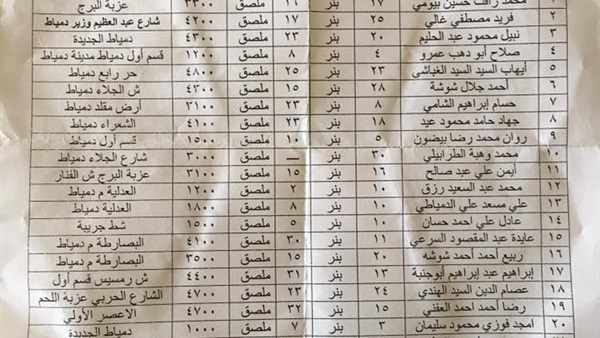 ١ محمد رافت حسين بيومي ١٧ بنر ملصق ٣٣٠٠ عزبة البرج
٢ فريد مصطفي غالي ٢٥ بنر ١٧ ملصق ٤٢٠٠ شارع عبد العظيم وزير دمياط
٣ نبيل محمود عبد الحليم ٢٠ بنر ٢٣ ملصق ٤٣٠٠ دمياط الجديدة
٤ صلاح أبو دهب عمرو ٤ بنر ٨ ملصق ١٢٠٠ قسم أول دمياط مدينة دمياط
٥ أيهاب السيد السيد الغياشي ٢٣ بنر ٢٥ ملصق ٤٨٠٠ حر رابع دمياط
٦ أحمد جلال شوشة ٢٨ بنر ١٥ ملصق ٤٣٠٠ ش الجلاء دمياط
٧ حسام إبراهيم الشامي ٨ بنر ٢٣ ملصق ٣١٠٠ أرض مقلد دمياط
٨ جهاد حامد محمود عيد ١٨ بنر ٢٣ ملصق ٤١٠٠ الشعراء دمياط
٩ روان محمد رضا بيضون ٥ بنر ١٠ ملصق ١٥٠٠ قسم أول دمياط
١٠ محمد وهبة الطرابيلي ٣٠ بنر — ملصق ٣٠٠٠ شارع الجلاء دمياط
١١ أيمن علي عبد صالح ١٦ بنر ١٥ ملصق ٣١٠٠ عزبة البرج ش الفنار
١٢ محمد عبد السعيد رزق ١٠ بنر ٢ ملصق ١٢٠٠ العدلية م دمياط
١٣ علي مسعد علي الدمياطي ١٠ بنر ٨ ملصق ١٨٠٠ العدلية دمياط
١٤ عادل علي احمد حسان ١٠ بنر ٥ ملصق ١٥٠٠ شط جريبة
١٥ عايدة عبد المقصود السرعي ١١ بنر ٣٠ ملصق ٤١٠٠ البصارطة م دمياط
١٦ ربيع أحمد أحمد شوشه ٢٠ بنر ١٥ ملصق ٣٥٠٠ البصارطة م دمياط
١٧ إبراهيم عبد إبراهيم أبوجنبة ١٣ بنر ٣١ ملصق ٤٤٠٠ ش رمسيس قسم أول
١٨ عصام الدين السيد الهندي ٢٤ بنر ٢٣ ملصق ٤٧٠٠ الشارع الحربي عزبة اللحم
١٩ رضا أحمد احمد العفني ١٥ بنر ٣٢ ملصق ٤٧٠٠ الاعصر الأولي
٢٠ امجد فوزي محمود سليمان ٣ بنر ٧ ملصق ١٠٠٠ دمياط الجديدة